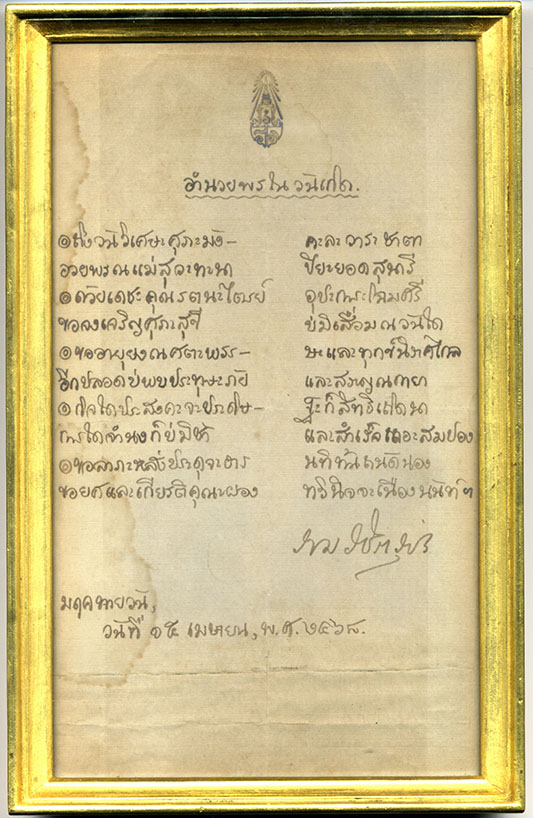 อำนวยพรในวันเกิด.
๏ ถึงวันวิเศษะศุภะมัง– คะละวาระชาตา
อวยพรณแม่สุวะทะนา ปิยะยอดสุนารี
๏ ด้วยเดชะคุณรตนะไตรย์ อุปะถัมภะโฉมศรี
ขอจงเจริญศุภะสุขี บ่มิเสื่อมณวันใด
๏ ขออายุยงณศตะพรร– ษะและทุกข์นิราศไกล
อีกปลอดบ่พบประทุษะภัย และสราญณกายา
๏ ใจใดประสงคะจะประดิษ– ฐะก็สิทธิเถิดนา
การใดจำนงก็บ่มิช้า และสำเร็จเถอะสมปอง
๏ ขอลาภะหลั่งประดุจะธาร นที
ขอยศและเกียรติคุณะผอง ทวินิจจะเนืองนันท์ ฯ
ราม วชิราวุธ ปร
มฤคทายวัน,
วันที่ ๑๕ เมษายน, พ.ศ. ๒๔๖๘.